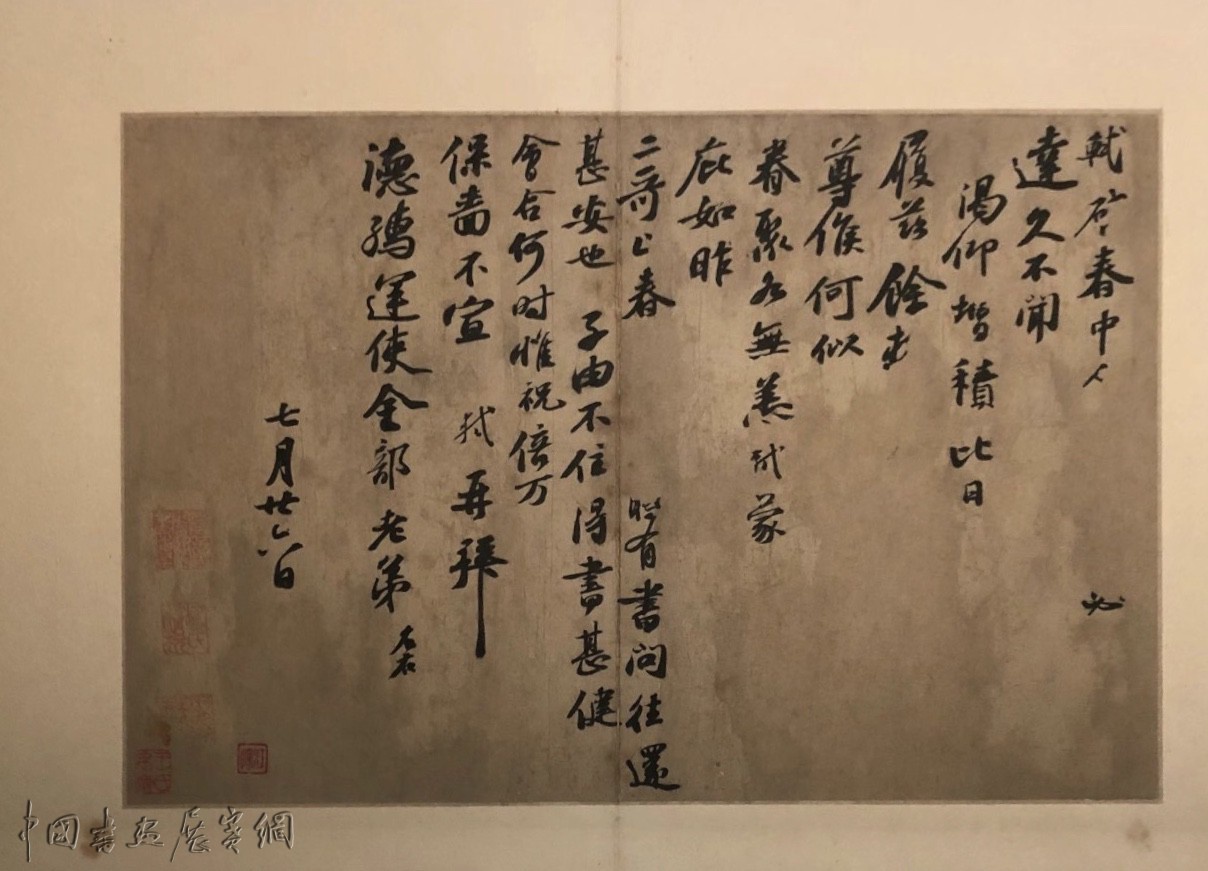 軾啓春中 必
達久不聞
渴仰增積比日
履茲餘
尊候何似
眷聚各無恙軾蒙
庇如昨
二哥上春 時有書問往還
甚安也 子由不住得書甚健
會合何時惟祝倍万
保嗇不宣 軾 再拜
德孺運使金部老弟
七月廿六日
中國書畫展賽網